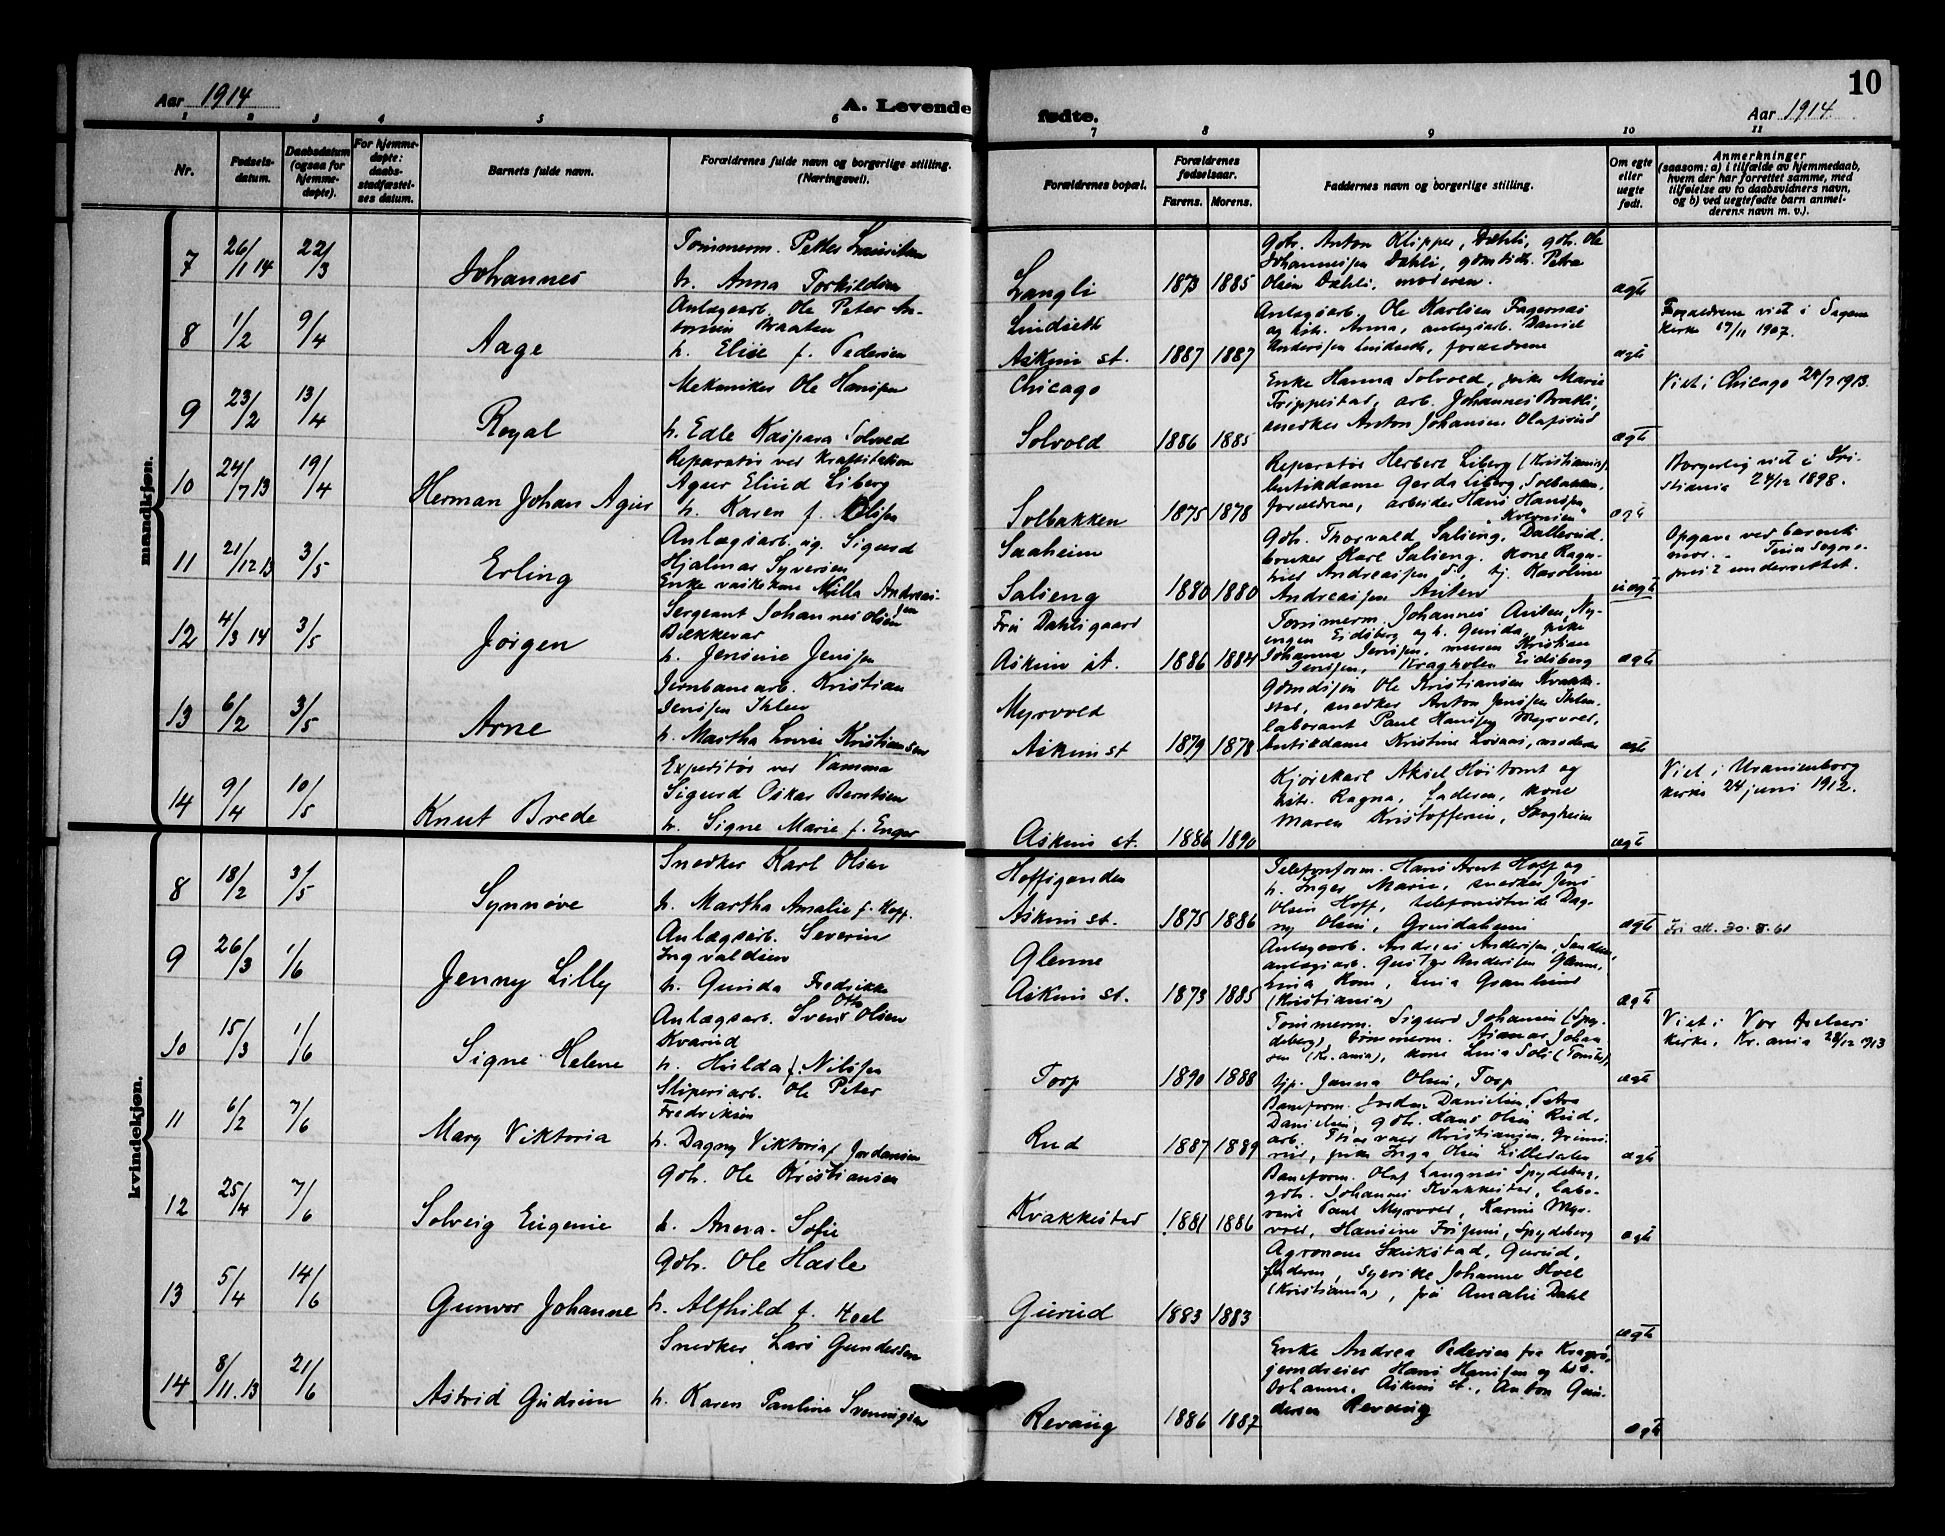 Aar 1914
A. Levende
fødte.
Aar 1914
10
1 2 3 4 5 6 7 8 9 10 11
Nr.
Fødsels-
datum.
Daabsdatum
(ogsaa for
hjemme-
døpte).
For hjemme-
døpte:
daabs-
stadfæstel-
ses datum.
Barnets fulde navn.
Forældrenes fulde navn og borgerlige stilling.
(Næringsvei).
Forældrenes bopæl.
Forældrenes
fødselsaar.
Farens. Morens.
Faddernes navn og borgerlige stilling.
Om egte
eller
uegte
født.
Anmerkninger
(saasom: a) i tilfælde av hjemmedaab,
hvem der har forrettet samme, med
tilføielse av to daabsvidners navn,
og b) ved uegtefødte barn anmel-
derens navn m. v.).
mandkjøn.
7 26/1 14 22/3 Johannes
Tømmerm. Petter
h. Anna Torkildsen
Langli 1873 1885
Gdbr. Anton Klipper, Dæhli, gdbr. Ole
Johannessen Dæhli, Petra
Olsen Dæhli, moderen.
ægte
8 1/2 9/4 Aage
Anlægsarb. Ole Peter An-
tonsen Braaten
h. Elise f. Pedersen
Lindseth
Askim st. 1887 1887
Anlægsarb. Ole Karlsen Fagernæs
og hstr. Anna, anlægsarb. Daniel
Anderssen Lindseth, forældrene
ægte
Forældrene viet i Sagene
kirke 17/11 1907.
9 23/2 13/4 Royal
Mekaniker Ole Hanssen
h. Edle Kaspara Solvold
Chicago
Solvold 1886 1885
Enke Hanna Solvold, pike Marie
Frippestad, arb. Johannes Bratli,
snedker Anton Johansen Olafsrud
ægte
Viet i Chicago 24/7 1913.
10 24/7 13 19/4 Herman Johan Agus
Reparatør ved kraftstation
Agur Eliud Liberg
h. Karen f. Olsen
Solbakken 1875 1878
Reparatør Herbert Liberg (Kristiania),
butikdame Gerda Liberg, Solbakken,
forældrene, arbeider Hans Hanssen
"Kolonien"
ægte
Borgerlig viet i Kri-
stiania 24/12 1898.
11 21/12 13 3/5 Erling
Anlægsarb. ug. Sigurd
Hjalmar Syversen
Enke vaskekone Milla Andreas-
sen
Saaheim
Salseng 1880 1880
Gdbr. Thorvald Salseng, Dallerud,
bruker Karl Salseng, kone Ragn-
hild Andreassen, tj. Karoline
Andreassen Auten
uægte
Opgave ved barnets
mor. - Tinn Sogne-
prest underrettet.
12 4/3 14 3/5 Jørgen
Sergeant Johannes Olsen
Bækkevar
h. Jensine Jenssen
Frii Dahlsgaard
Askim st. 1886 1884
Tømmerm. Johannes Auten, Ny-
engen Eidsberg og h. Gunda, pike
Johanna Jenssen, murer Kristian
Jenssen, Kragholen Eidsberg
ægte
13 6/2 3/5 Arne
Jernbanearb. Kristian
Jenssen Ihlen
h. Martha Lovise Kristiansen
Myrvold
Askim st 1879 1878
Gaardssøn Ole Kristiansen Kvakke-
stad, snedker Anton Jenssen Ihlen,
laborant Paul Hanssen Myrvold,
butikdame Kristine Løvaas, moderen
ægte
14 9/4 10/5 Knut Brede
Expeditør ved Vamma
Sigurd Oskar Berntsen
h. Signe Marie f. Enger
Askim st. 1886 1890
Kjørekarl Aksel Høitomt og
hstr. Ragna, faderen, kone
Maren Kristoffersen,
ægte
Viet i Uranienborg
kirke 24 juni 1912.
kvindekjøn.
8 18/2 3/5 Synnøve
Snedker Karl Olsen
h. Martha Amalie f. Hoff
Hoffsgrenden
Askim st. 1875 1886
Telefonform. Hans Arnt Hoff og
h. Inger Marie, snedker Jens
Olsen Hoff, telefonistinde Dag-
ny Olsen, Grindaheim
ægte
Fri att. 30.8.61
9 26/3 1/6 Jenny Lilly
Anlægsarb. Severin
Ingvaldsen
h. Gunda Fredrikke
Glenne
Askim st. 1873 1885
Anlægsarb. Andreas Anderssen, Sanden,
anlægsarb. Gustav Anderssen Glenne,
Lina Granlund
(Kristiania)
ægte
10 15/3 1/6 Signe Helene
Anlægsarb. Sven Otto Olsen
Kvarud
h. Hulda f. Nilssen
Torp 1890 1888
Tømmerm. Sigurd Johansen (Spy-
deberg), tømmerm. Asmar Johan-
sen (Kr.ania), kone Lina Soli (Tomter),
tjp. Janna Olsen, Torp
ægte
Viet i Vor Frelsers
kirke, Kr.ania 28/12 1913
11 6/2 7/6 Mary Viktoria
Sliperiarb. Ole Peter
Fredriksen
h. Dagny Viktoria f. Jordansen
Rud 1887 1889
Baneform. Jordan Danielsen, Petra
Danielsen, gdbr. Hans Olsen Rud,
arb. Kristiansen, Grims-
rud, pike Inga Olsen Lilledalen
ægte
12 25/4 7/6 Solveig Eugenie
Gdbr. Ole Kristiansen
h. Anna Sofie
Kvakkestad 1881 1886
Baneform. Olaf Langnes Spydeberg,
gdbr. Johannes Kvakkestad, labo-
rant Paul Myrvold, Karen Myr-
vold, Hansine Spydeberg
ægte
13 5/4 14/6 Gunvor Johanne
Gdbr. Ole Hasle
h. Alfhild f. Hoel
Gurud 1883 1883
Agronom Skukstad, Gurud,
faderen, syerske Johanne Hoel
(Kristiania), frk Amalie Dahl
ægte
14 8/11.13 21/6 Astrid Gudrun
Snedker Lars Gundersen
h. Karen Pauline Svenningsen
Revaug 1886 1887
Enke Andrea Pedersen fra Kragerø,
jerndreier Hans Hanssen og hst.
Johanne, Askim st., Anton Gun-
dersen Revaug
ægte